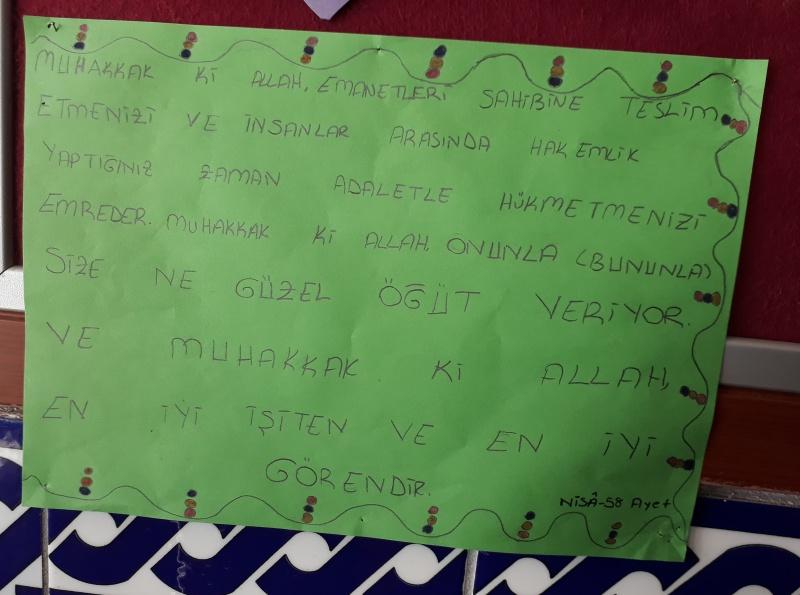 MUHAKKAK Kİ ALLAH, EMANETLERİ SAHİBİNE TESLİM
ETMENİZİ VE İNSANLAR ARASINDA HAKEMLİK
YAPTIĞINIZ ZAMAN ADALETLE HÜKMETMENİZİ
EMREDER. MUHAKKAK Kİ ALLAH, ONUNLA (BUNUNLA)
SİZE NE GÜZEL ÖĞÜT VERİYOR.
VE MUHAKKAK Kİ ALLAH,
EN İYİ İŞİTEN VE EN İYİ
GÖRENDİR.
NİSÂ-58 Ayet